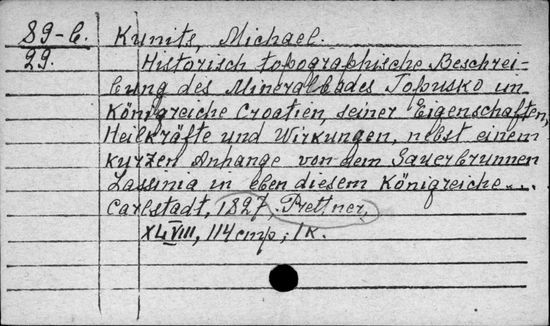 89-b. Kunits, Michael.
29. Historisch topographische Beschrei-
bung des Mineralbades Topusko im
Königreiche Croatien, seiner Eigenschaften,
Heilkräfte und Wirkungen, nebst einem
kurzen Anhange von dem Sauerbrunnen
Lassinia in eben diesem Königreiche...
Carlstadt, 1827, Prettner,
XLVIII, 114 cmp; 1 K.